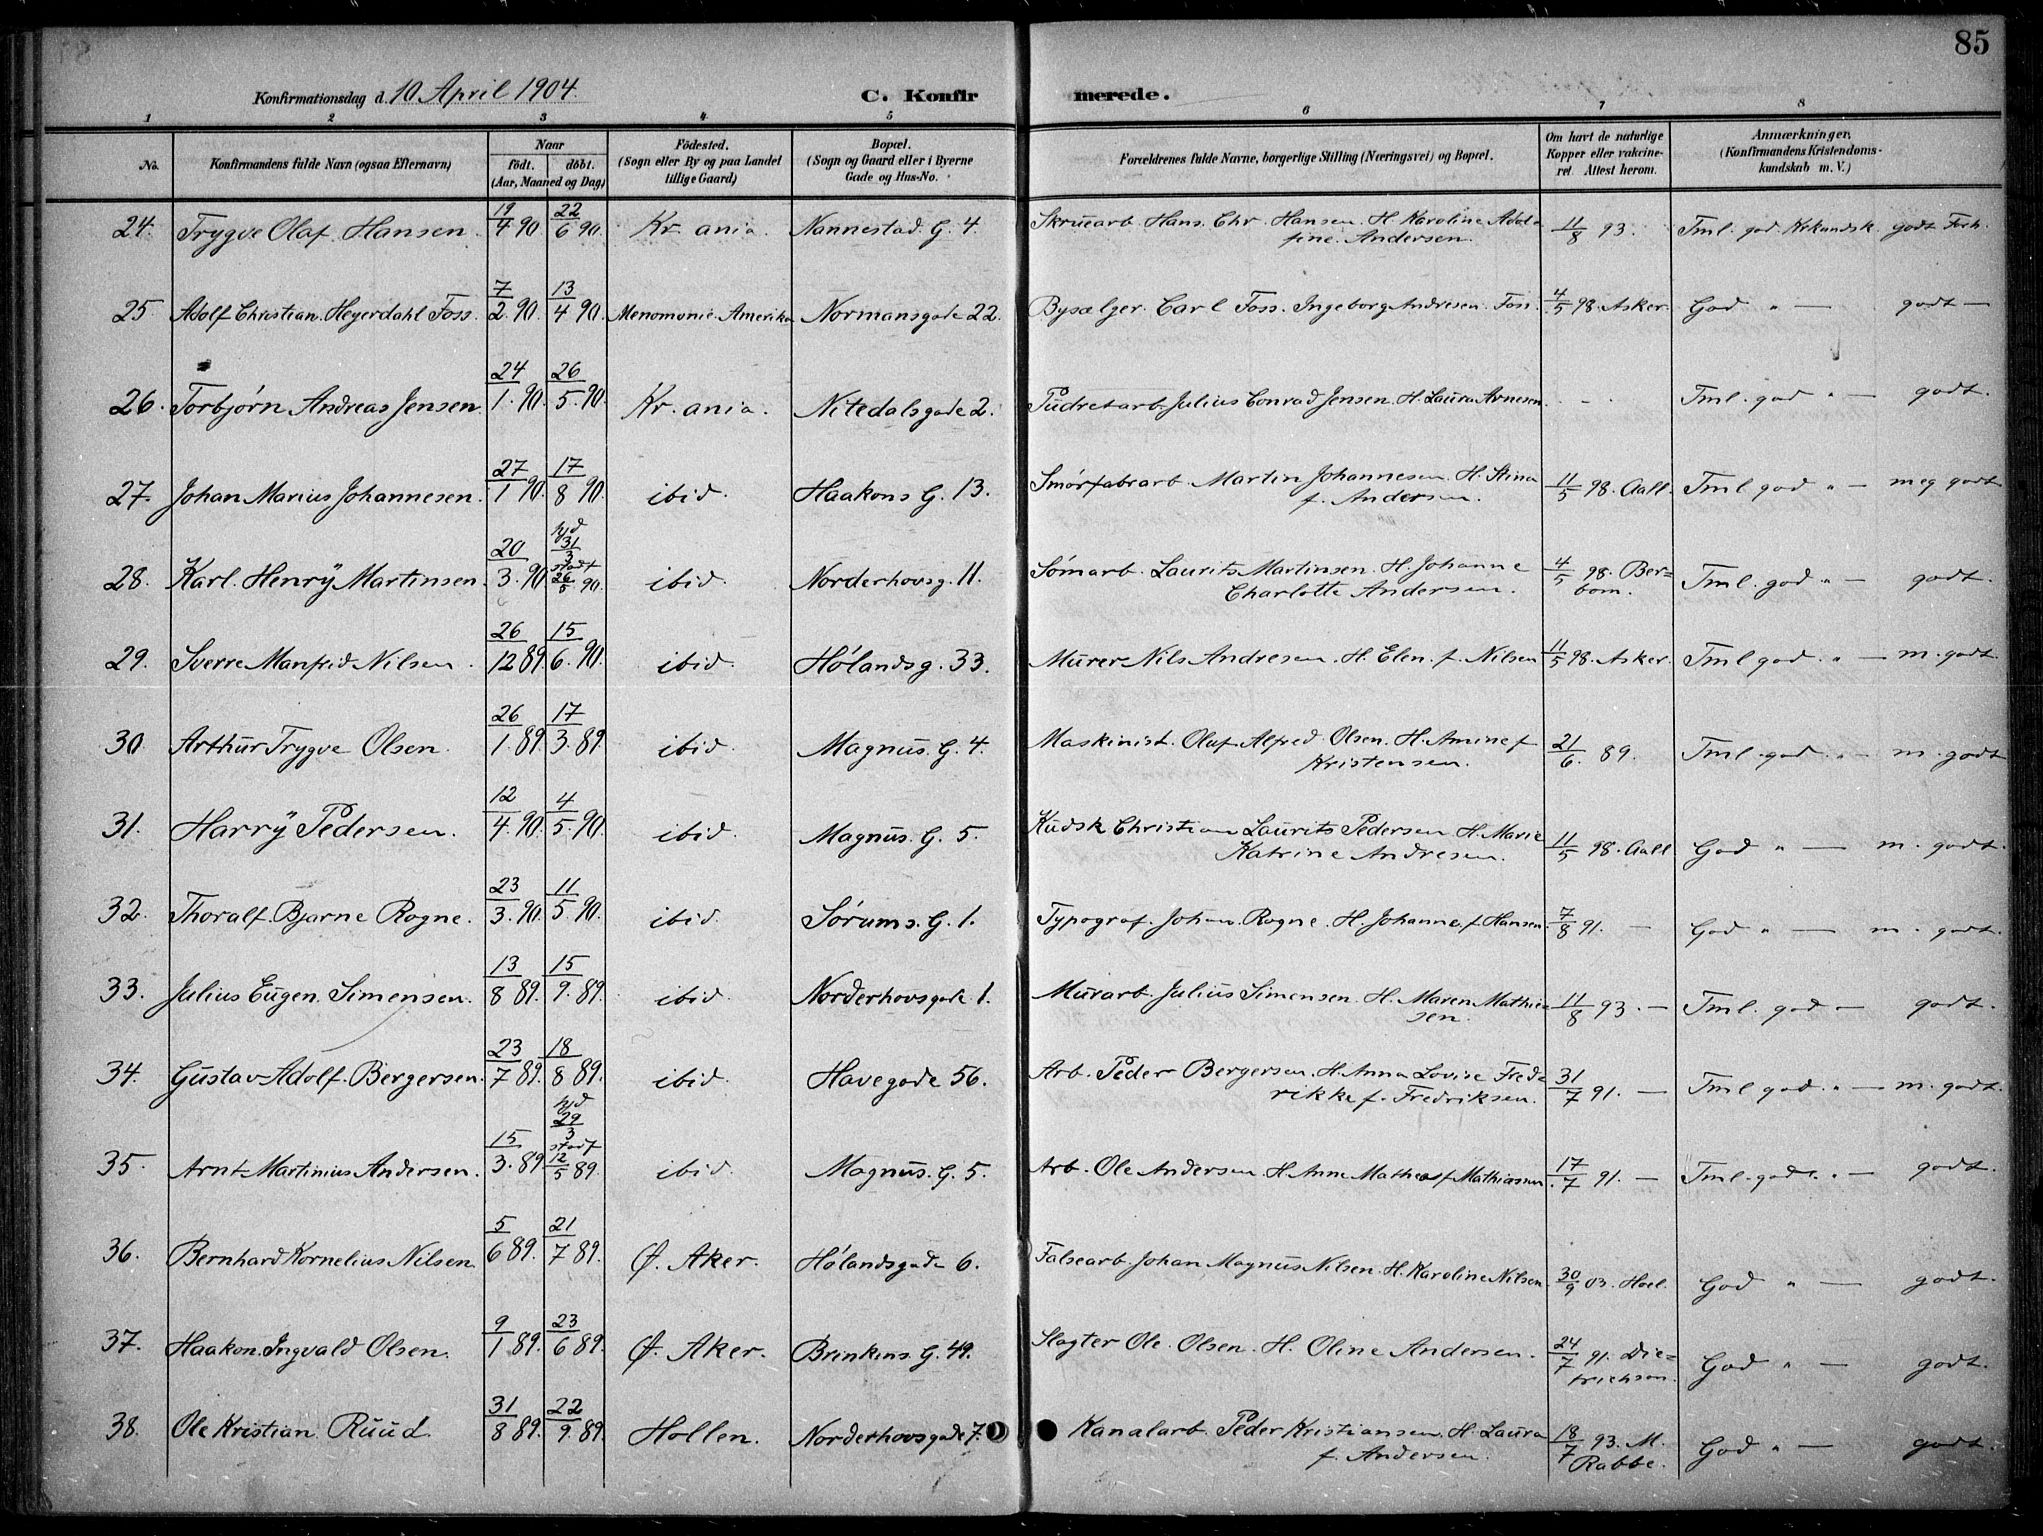 85
Konfirmationsdag d. 10 April 1904.
C. Konfirmerede.
1 2 3 4 5 6 7 8
No. | Konfirmandens fulde Navn (ogsaa Efternavn) | Naar født. døbt. (Aar, Maaned og Dag) | Fødested. (Sogn eller By og paa Landet tillige Gaard) | Bopæl. (Sogn og Gaard eller i Byerne Gade og Hus-No. | Forældrenes fulde Navne, borgerlige Stilling (Næringsvei) og Bopæl. | Om havt de naturlige Kopper eller vakcineret. Attest herom. | Anmærkninger. (Konfirmandens Kristendomskundskab m. V.)
24. Trygve Olaf Hansen. 19/4 90 22/6 90. Kr. ania. Nannestad. G. 4. Skruearb. Hans. Chr. Hansen. H. Karoline Adol= 11/8 93. Tml. god. Krkundsk. godt Forh.
fine. Andersen.
25 Adolf Christian. Heyerdahl Foss. 7/2. 90. 13/4 90. Menomonie. Amerika Normansgade 22. Bysælger. Carl Foss. Ingeborg Andresen Foss. 4/5 98. Asker. God " — godt —
26. Torbjørn Andreas Jensen 24/1. 90. 26/5. 90. Kr. ania. Nitedalsgade 2. Pudretarb. Julius Conrad Jensen. H. Laura Arnesen - - Tml. god " — godt.
27. Johan Marius Johannesen. 27/1 90. 17/8 90. ibid. Haakons G. 13. Smørfabrarb. Martin Johannesen. H. Stina 11/5 98. Aall. Tml. god " — meg godt
f. Andersen.
28. Karl. Henrÿ Martinsen. 20/3. 90 hjd 31/3 stadf 26/5. 90. ibid. Norderhovsg. 11. Sømarb. Laurits Martinsen. H. Johanne 4/5 98. Ber= Tml. god " — godt.
Charlotte Andersen. bom.
29. Sverre Manfrid Nilsen. 26/12 89 15/6. 90. ibid. Hølandsg. 33. Murer Nils Andresen. H. Elen. f. Nilsen 11/5 98. Asker. Tml god. " — m. godt.
30. Arthur Trygve Olsen. 26/1. 89. 17/3. 89. ibid. Magnus. G. 4. Maskinist. Olaf Alfred Olsen. H. Amine f 21/6. 89. Tml. god. " — m. godt
Kristensen.
31. Harrÿ Pedersen. 12/4. 90. 4/5. 90. ibid. Magnus. G. 5. Kudsk Christian Laurits Pedersen H. Marie 11/5 98. Aall God " — m. godt.
Katrine Andresen.
32. Thoralf. Bjarne Rogne. 23/3. 90. 11/5 90. ibid. Sørums. G. 1. Typograf. Johan. Rogne. H. Johanne. f. Hansen. 7/8 91. — God " — m. godt.
33. Julius Eugen. Simensen. 13/8 89. 15/9. 89. ibid. Norderhovsgade. 1. Murarb. Julius Simensen. H. Maren Mathie= 11/8 93. — Tml. god — godt.
sen.
34. Gustav Adolf. Bergersen. 23/7 89. 18/8 89. ibid. Havegade 56. Arb. Peder Bergersen. H. Anna Lovise Fred= 31/7 91. — Tml god. " — m. godt.
rikke f. Fredriksen.
35. Arnt Martinius Andersen. 15/3. 89 hjd 29/3 stadf 12/5 89. ibid. Magnus. G. 5. Arb. Ole Andersen. H. Anne Mathea f Mathiassen 17/7 91. — Tml. god. " — godt.
36. Bernhard Kornelius Nilsen. 5/6 89. 21/7 89. Ø. Aker. Hølandsgade 6. Falsearb. Johan Magnus Nilsen. H. Karoline Nilsen 30/9 03. Hoel. God " — godt.
37. Haakon. Ingvald Olsen. 9/1 89. 23/6 89. Ø. Aker. Brinkens. G. 49. Slagter Ole Olsen. H. Oline Andersen. 24/7 91. Die= God " — godt.
trichson.
38. Ole Kristian. Ruud. 31/8 89. 22/9. 89. Hollen. Norderhovsgade 7. Kanalarb. Peder Kristiansen. H. Laura 18/7 93. M. God " — godt.
f. Andersen. Rabbe.